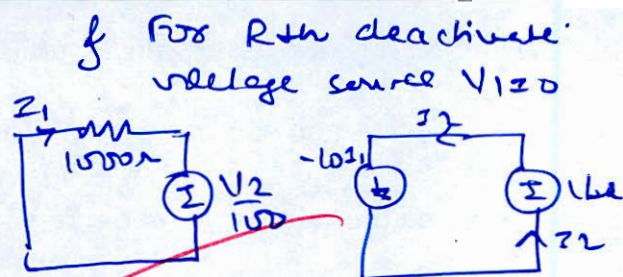 f For Rth deactivate
voltage source V1=0
I1
1000Ω
V2
100
-10I1
I2
I2